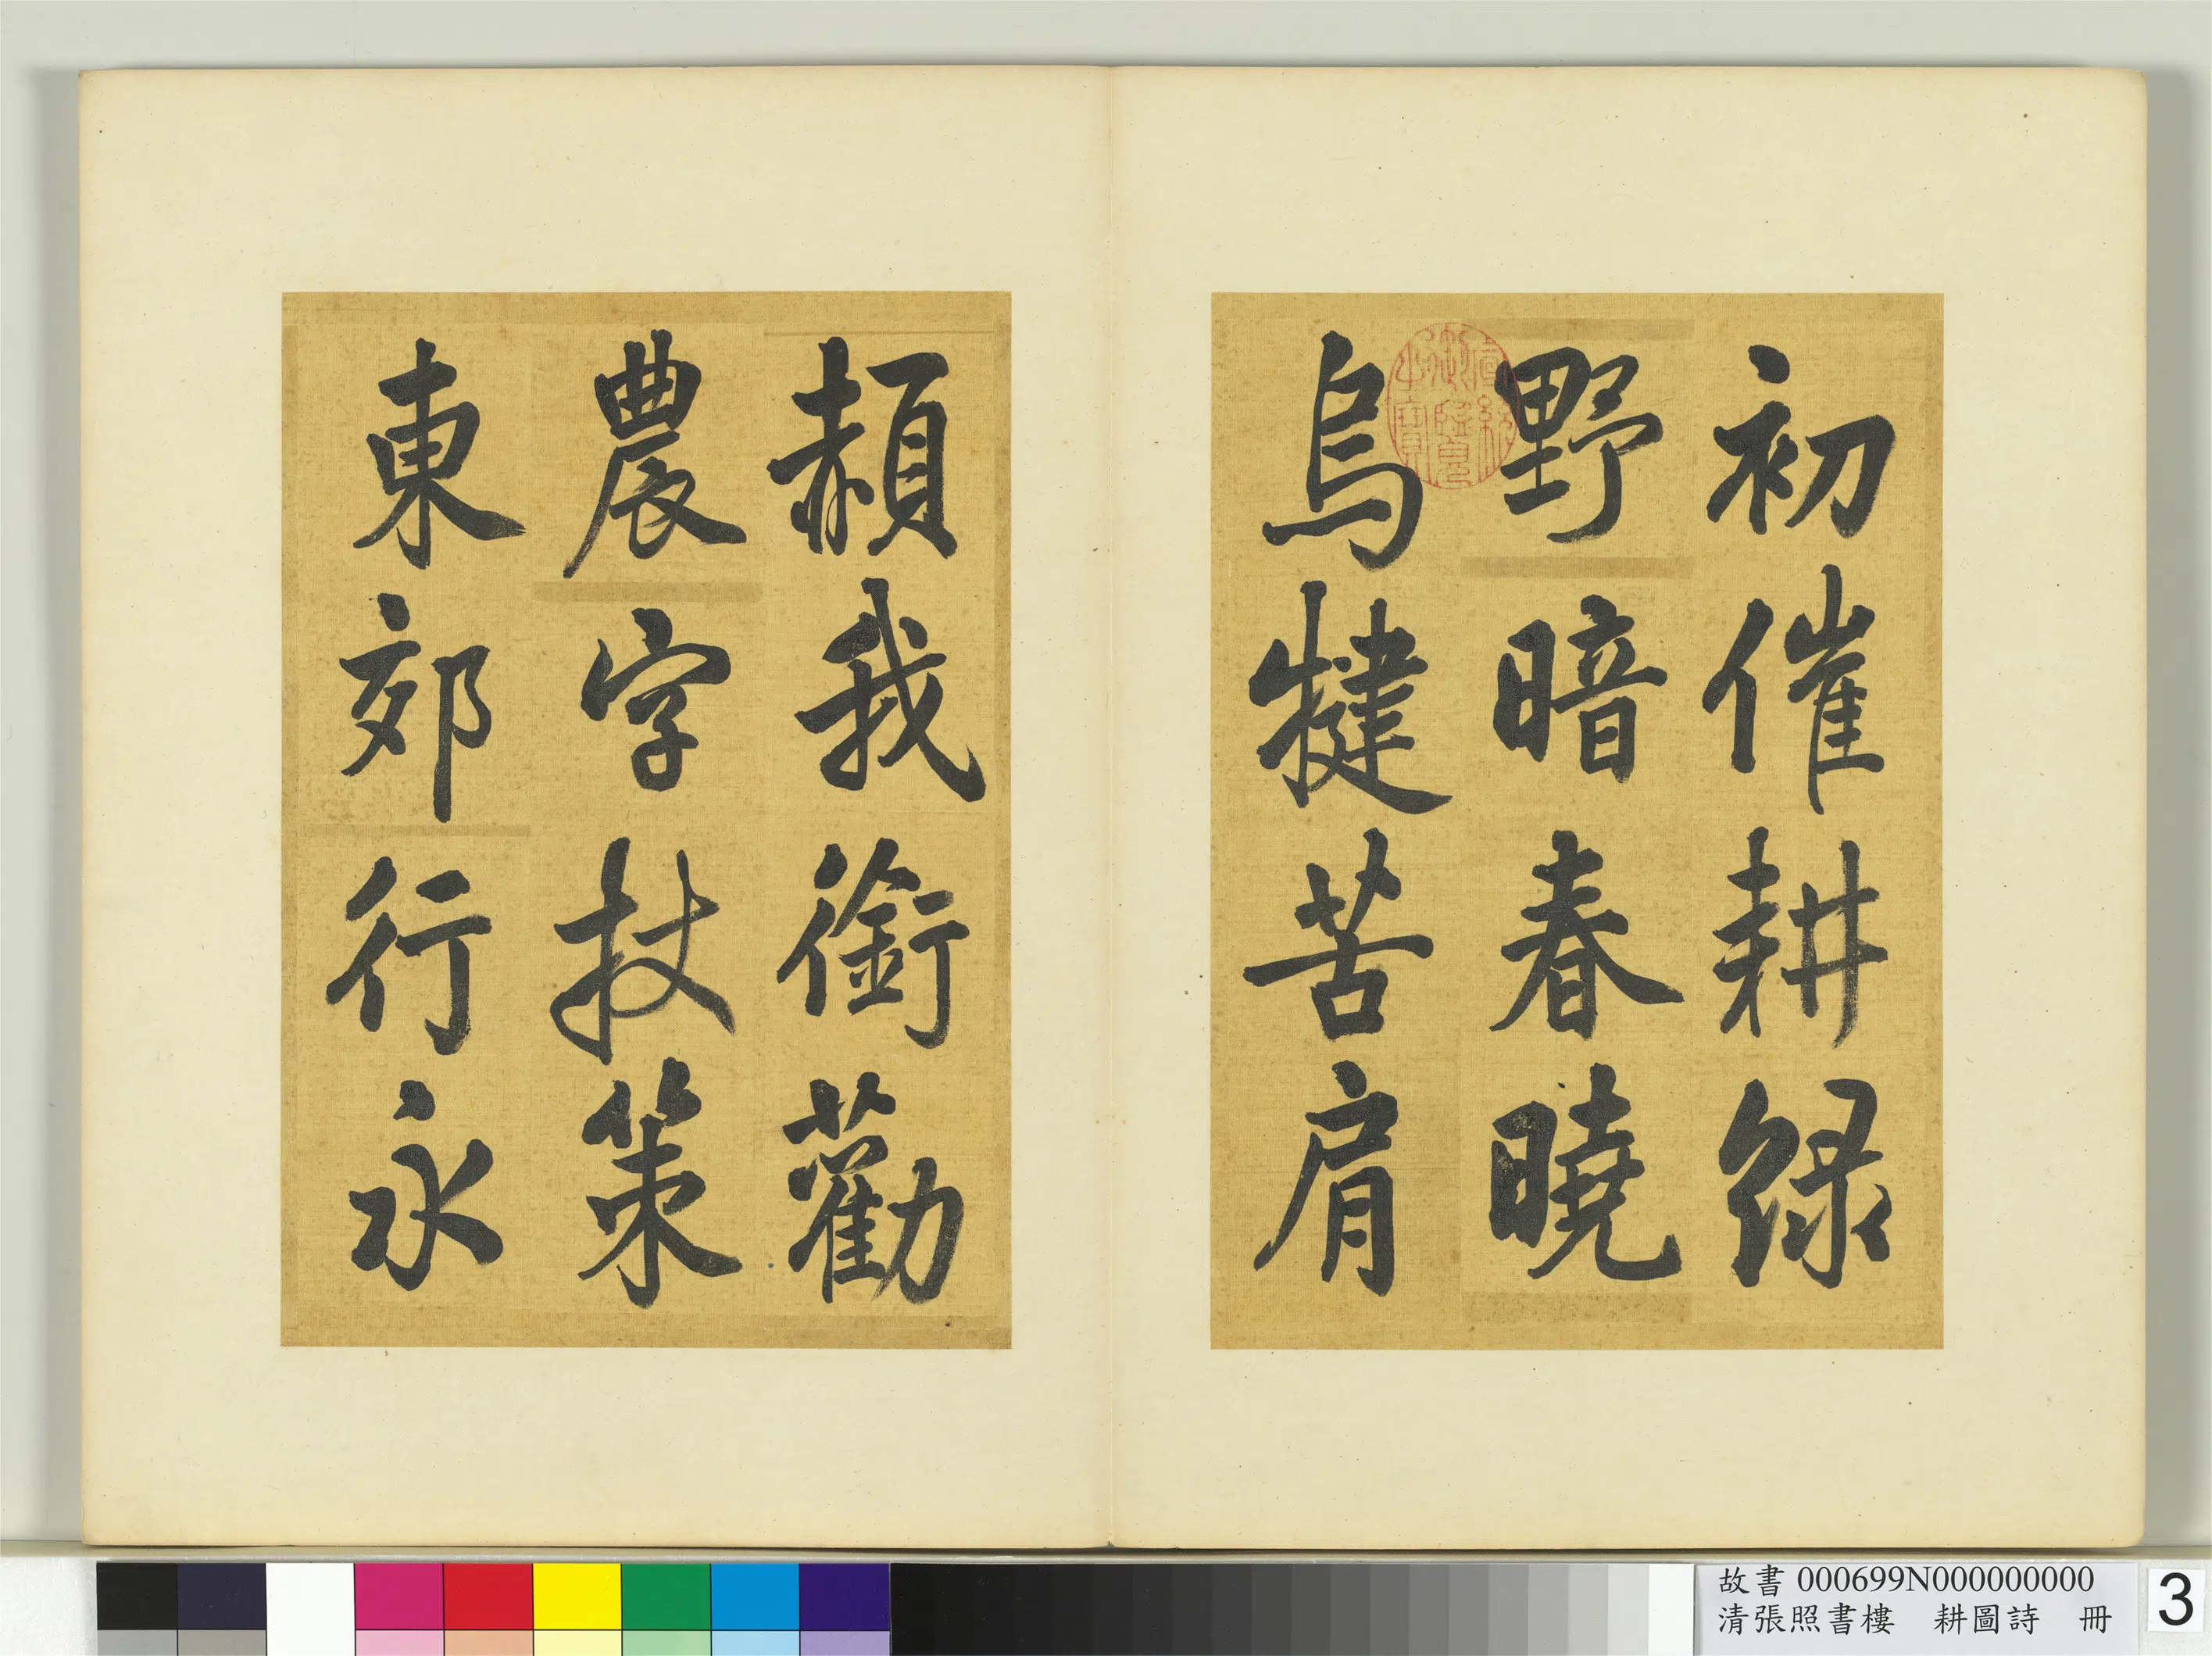 初催耕綠
野暗春曉
烏犍苦肩
頳我銜勸
農字杖策
東郊行永
宣統
御覽
之寶
故書 000699N000000000
清張照書樓　耕圖詩　冊
3